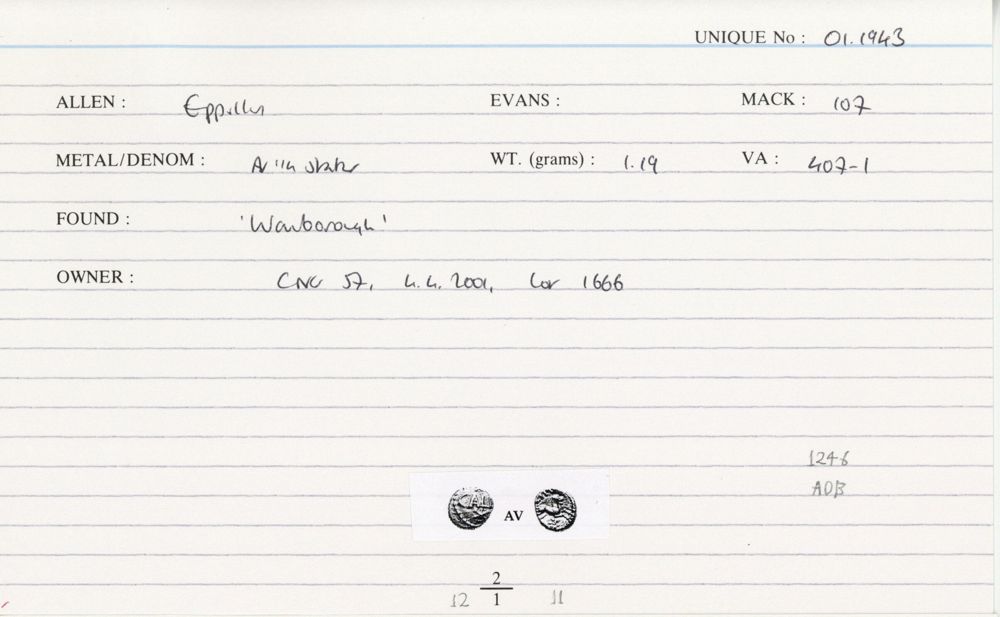 UNIQUE No : 01.1943
ALLEN : Eppillus EVANS : MACK : 107
METAL/DENOM : AV 1/4 stater WT. (grams) : 1.19 VA : 407-1
FOUND : 'Warborough'
OWNER : CNG 57, 4.4.2001, Lot 1666
1246
ADB
CAL
AV
2
12 1 11